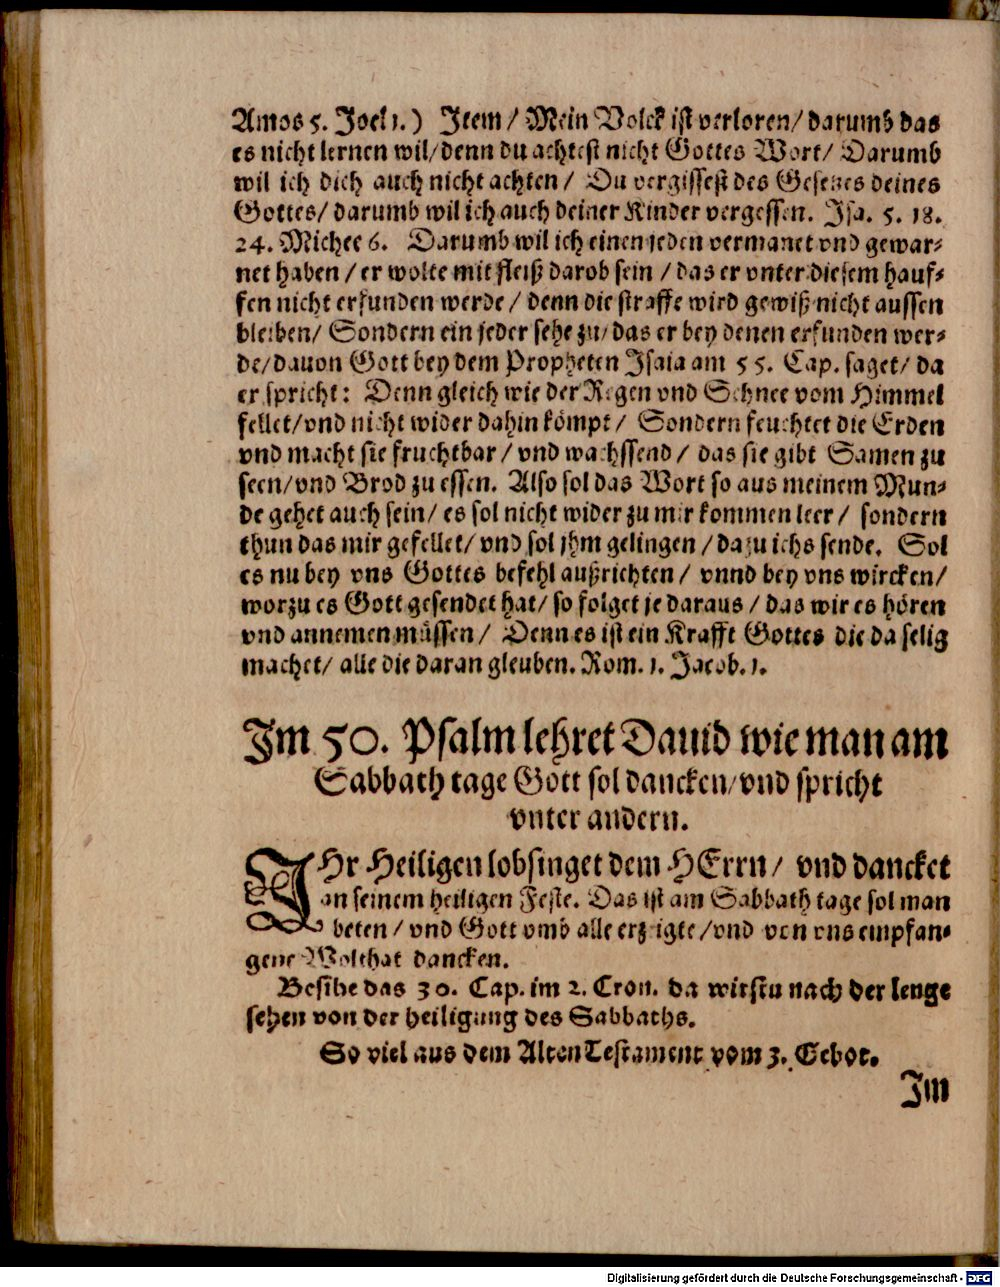 Amos 5. Joel 1.) Item / Mein Volck ist verloren/ darumb das
es nicht lernen wil/ denn du achtest nicht Gottes Wort/ Darumb
wil ich dich auch nicht achten / Du vergissest des Gesetzes deines
Gottes/ darumb wil ich auch deiner Kinder vergessen. Isa. 5. 18.
24. Michee 6. Darumb wil ich einen jeden vermanet vnd gewar-
net haben / er wolte mit fleiß darob sein / das er vnter diesem hauf-
fen nicht erfunden werde / denn die straffe wird gewiß nicht aussen
bleiben/ Sondern ein jeder sehe zu/ das er bey denen erfunden wer-
de/ dauon Gott bey dem Propheten Isaia am 55. Cap. saget/ da
er spricht: Denn gleich wie der Regen vnd Schnee vom Himmel
fellet/ vnd nicht wider dahin kömpt / Sondern feuchtet die Erden
vnd macht sie fruchtbar / vnd wachssend / das sie gibt Samen zu
seen/ vnd Brod zu essen. Also sol das Wort so aus meinem Mun-
de gehet auch sein/ es sol nicht wider zu mir kommen leer / sondern
thun das mir gefellet/ vnd sol jhm gelingen / dazu ichs sende. Sol
es nu bey vns Gottes befehl außrichten / vnnd bey vns wircken/
worzu es Gott gesendet hat/ so folget je daraus / das wir es hören
vnd annemen müssen / Denn es ist ein Krafft Gottes die da selig
machet/ alle die daran gleuben. Rom. 1. Jacob. 1.
Im 50. Psalm lehret Dauid wie man am
Sabbath tage Gott sol dancken/ vnd spricht
vnter andern.
IHr Heiligen lobsinget dem HErrn / vnd dancket
an seinem heiligen Feste. Das ist am Sabbath tage sol man
beten / vnd Gott vmb alle erzeigte / vnd von vns empfan-
gene Wolthat dancken.
Besihe das 30. Cap. im 2. Cron. da wirstu nach der lenge
sehen von der heiligung des Sabbaths.
So viel aus dem Alten Testament vom 3. Gebot.
Im
Digitalisierung gefördert durch die Deutsche Forschungsgemeinschaft - DFG